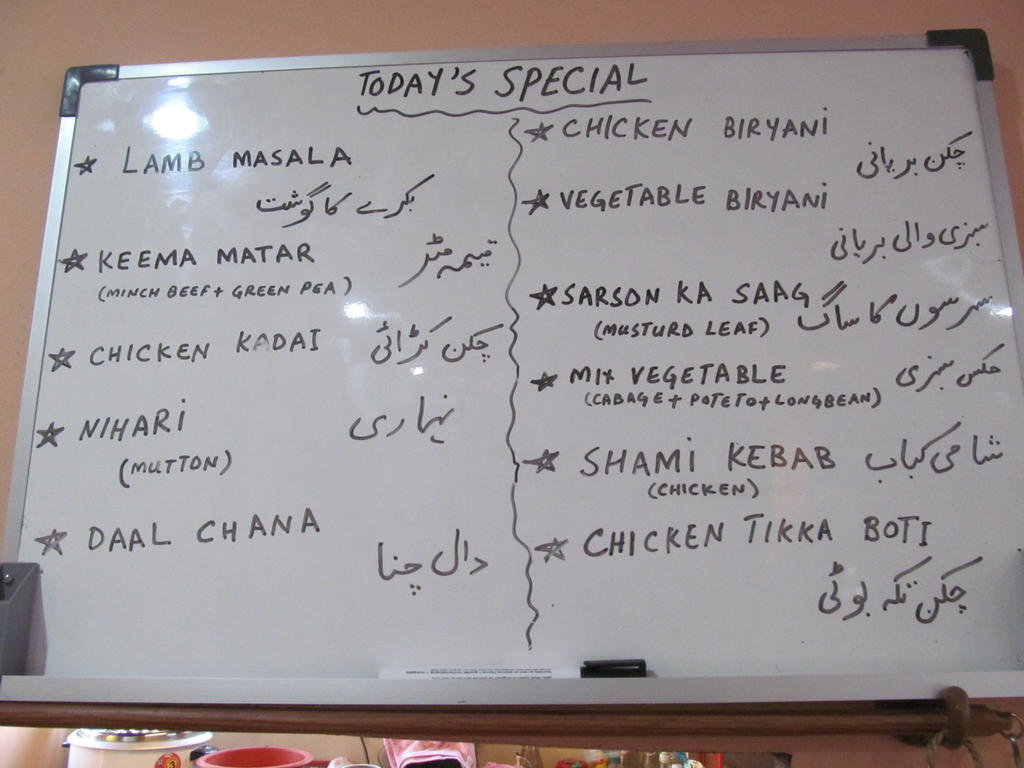 TODAY'S SPECIAL
★ LAMB MASALA
بکرے کا گوشت
★ KEEMA MATAR قیمہ مٹر
(MINCH BEEF + GREEN PEA)
★ CHICKEN KADAI چکن کڑائی
★ NIHARI نہاری
(MUTTON)
★ DAAL CHANA
دال چنا
★ CHICKEN BIRYANI
چکن بریانی
★ VEGETABLE BIRYANI
سبزی والی بریانی
★ SARSON KA SAAG سرسوں کا ساگ
(MUSTURD LEAF)
★ MIX VEGETABLE مکس سبزی
(CABAGE + POTETO + LONGBEAN)
★ SHAMI KEBAB شامی کباب
(CHICKEN)
★ CHICKEN TIKKA BOTI
چکن تکہ بوٹی